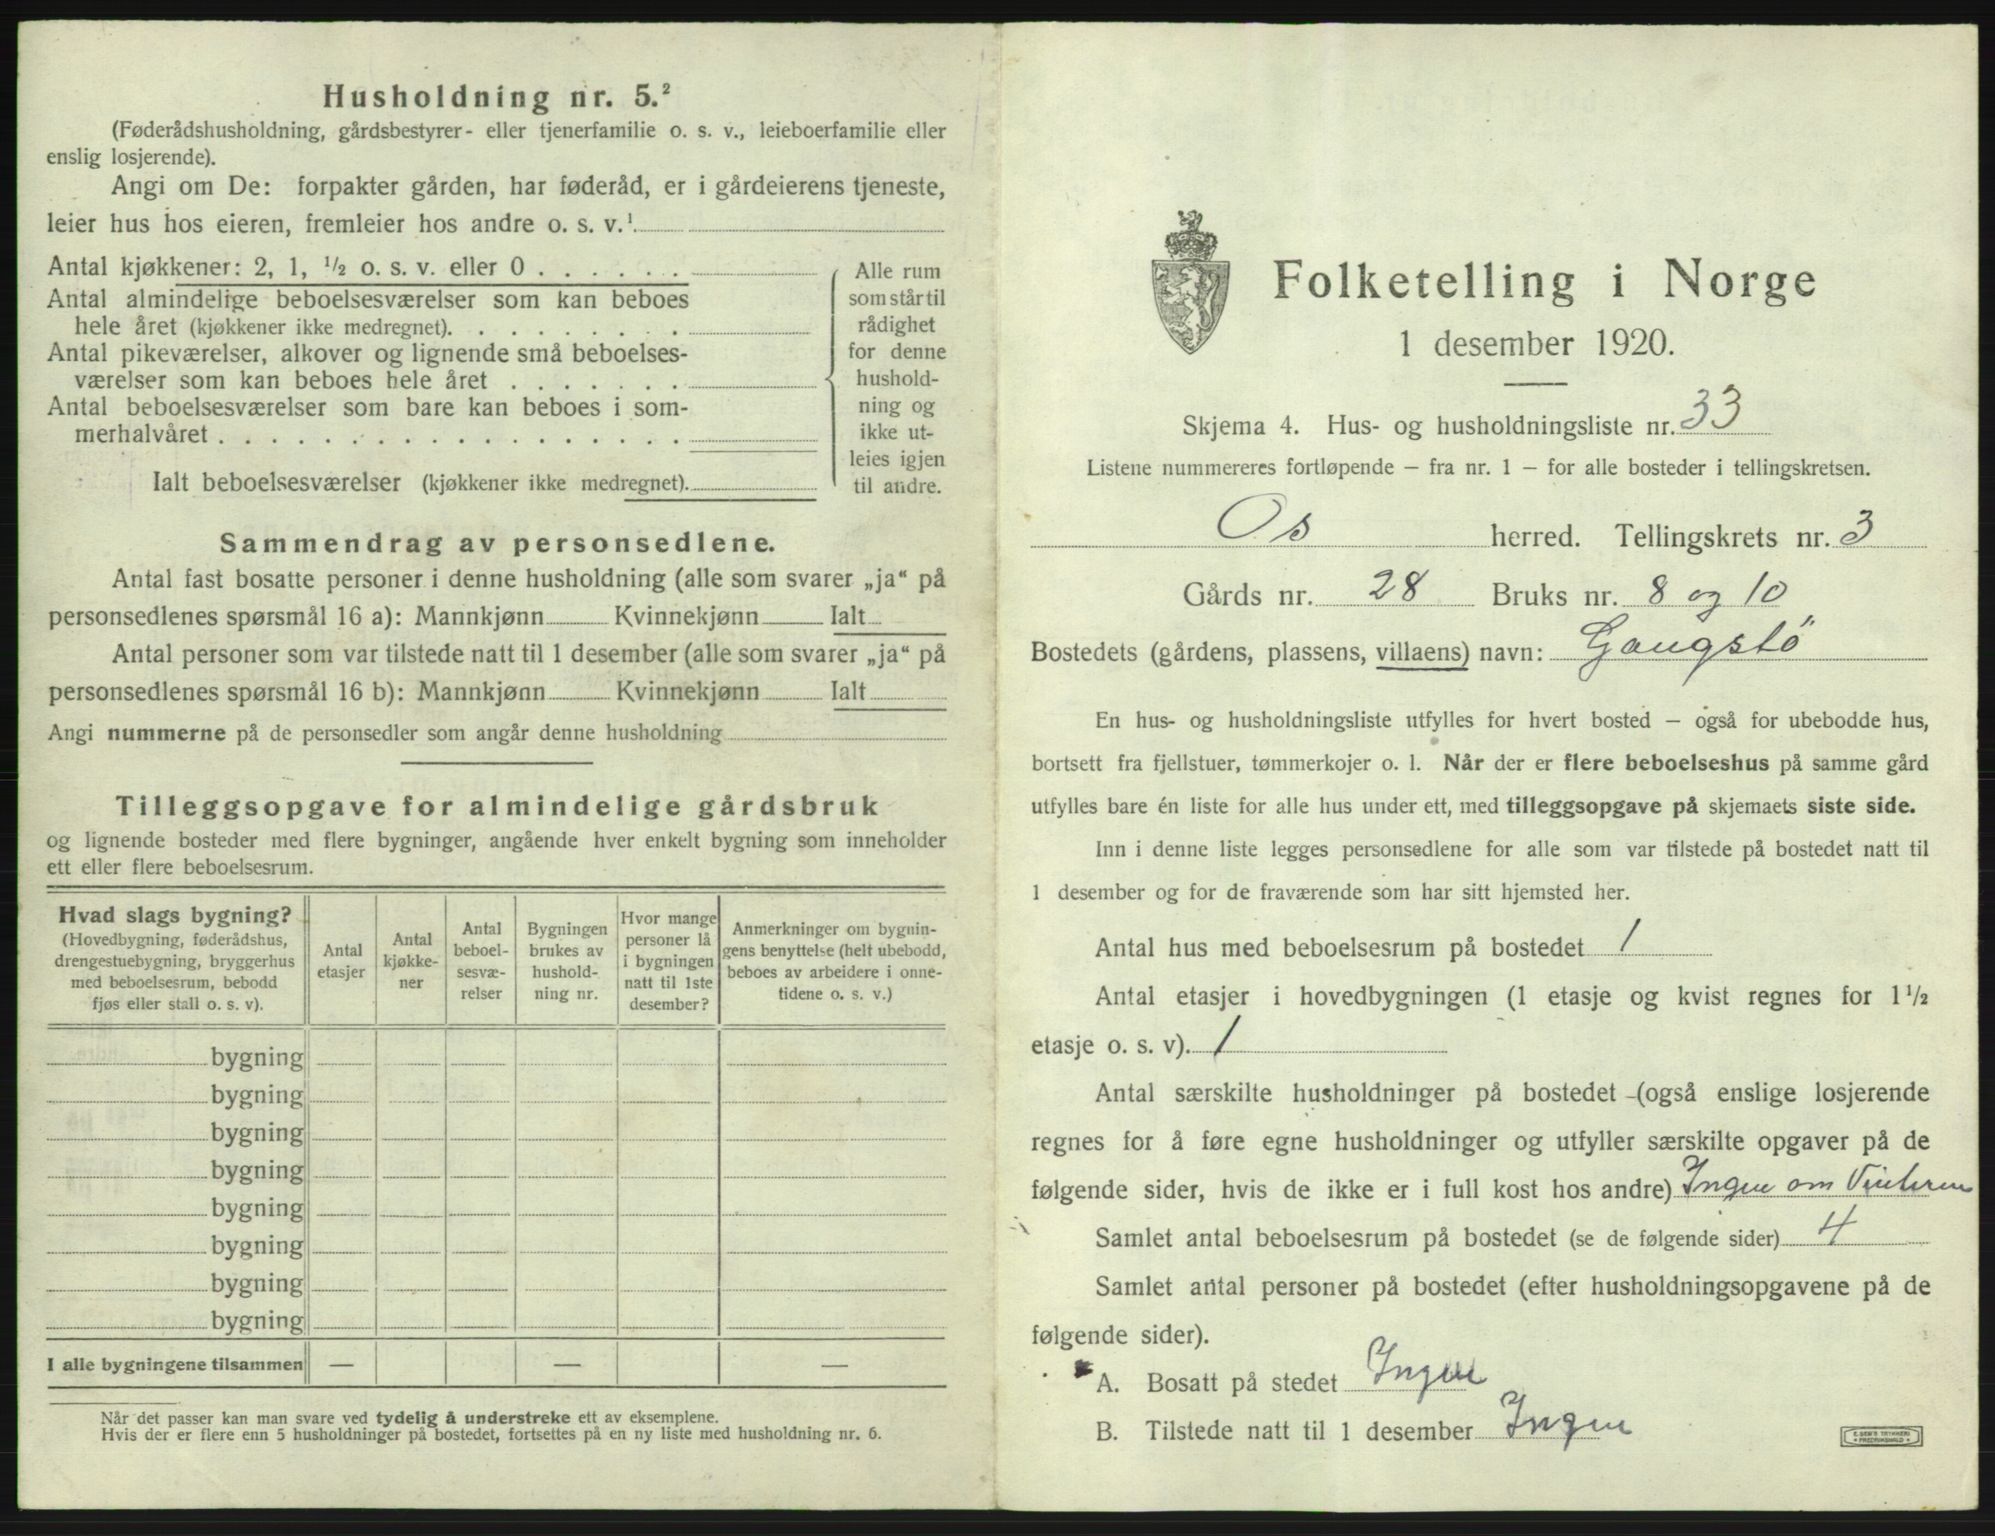 Husholdning nr. 5.²
(Føderådshusholdning, gårdsbestyrer- eller tjenerfamilie o. s. v., leieboerfamilie eller
enslig losjerende).
Angi om De: forpakter gården, har føderåd, er i gårdeierens tjeneste,
leier hus hos eieren, fremleier hos andre o. s. v.¹
Antal kjøkkener: 2, 1, ½ o. s. v. eller 0
Antal almindelige beboelsesværelser som kan beboes
hele året (kjøkkener ikke medregnet).
Antal pikeværelser, alkover og lignende små beboelses-
værelser som kan beboes hele året
Antal beboelsesværelser som bare kan beboes i som-
merhalvåret
Ialt beboelsesværelser (kjøkkener ikke medregnet).
Alle rum
som står til
rådighet
for denne
hushold-
ning og
ikke ut-
leies igjen
til andre.
Sammendrag av personsedlene.
Antal fast bosatte personer i denne husholdning (alle som svarer „ja“ på
personsedlenes spørsmål 16 a): Mannkjønn Kvinnekjønn Ialt
Antal personer som var tilstede natt til 1 desember (alle som svarer „ja“ på
personsedlenes spørsmål 16 b): Mannkjønn Kvinnekjønn Ialt
Angi nummerne på de personsedler som angår denne husholdning
Tilleggsopgave for almindelige gårdsbruk
og lignende bosteder med flere bygninger, angående hver enkelt bygning som inneholder
ett eller flere beboelsesrum.
Hvad slags bygning?
(Hovedbygning, føderådshus,
drengestuebygning, bryggerhus
med beboelsesrum, bebodd
fjøs eller stall o. s. v).
Antal
etasjer
Antal
kjøkke-
ner
Antal
beboel-
sesvæ-
relser
Bygningen
brukes av
hushold-
ning nr.
Hvor mange
personer lå
i bygningen
natt til 1ste
desember?
Anmerkninger om bygnin-
gens benyttelse (helt ubebodd,
beboes av arbeidere i onne-
tidene o. s. v.)
bygning
bygning
bygning
bygning
bygning
bygning
bygning
bygning
I alle bygningene tilsammen — — —
Når det passer kan man svare ved tydelig å understreke ett av eksemplene.
Hvis der er flere enn 5 husholdninger på bostedet, fortsettes på en ny liste med husholdning nr. 6.
Folketelling i Norge
1 desember 1920.
Skjema 4. Hus- og husholdningsliste nr. 33
Listene nummereres fortløpende – fra nr. 1 – for alle bosteder i tellingskretsen.
Os herred. Tellingskrets nr. 3
Gårds nr. 28 Bruks nr. 8 og 10
Bostedets (gårdens, plassens, villaens) navn: Gaugstö
En hus- og husholdningsliste utfylles for hvert bosted – også for ubebodde hus,
bortsett fra fjellstuer, tømmerkojer o. l. Når der er flere beboelseshus på samme gård
utfylles bare én liste for alle hus under ett, med tilleggsopgave på skjemaets siste side.
Inn i denne liste legges personsedlene for alle som var tilstede på bostedet natt til
1 desember og for de fraværende som har sitt hjemsted her.
Antal hus med beboelsesrum på bostedet 1
Antal etasjer i hovedbygningen (1 etasje og kvist regnes for 1½
etasje o. s. v). 1
Antal særskilte husholdninger på bostedet (også enslige losjerende
regnes for å føre egne husholdninger og utfyller særskilte opgaver på de
følgende sider, hvis de ikke er i full kost hos andre) Ingen om Vinteren
Samlet antal beboelsesrum på bostedet (se de følgende sider) 4
Samlet antal personer på bostedet (efter husholdningsopgavene på de
følgende sider).
A. Bosatt på stedet Ingen
B. Tilstede natt til 1 desember Ingen
E. SEM'S TRYKKERI
FREDRIKSHALD